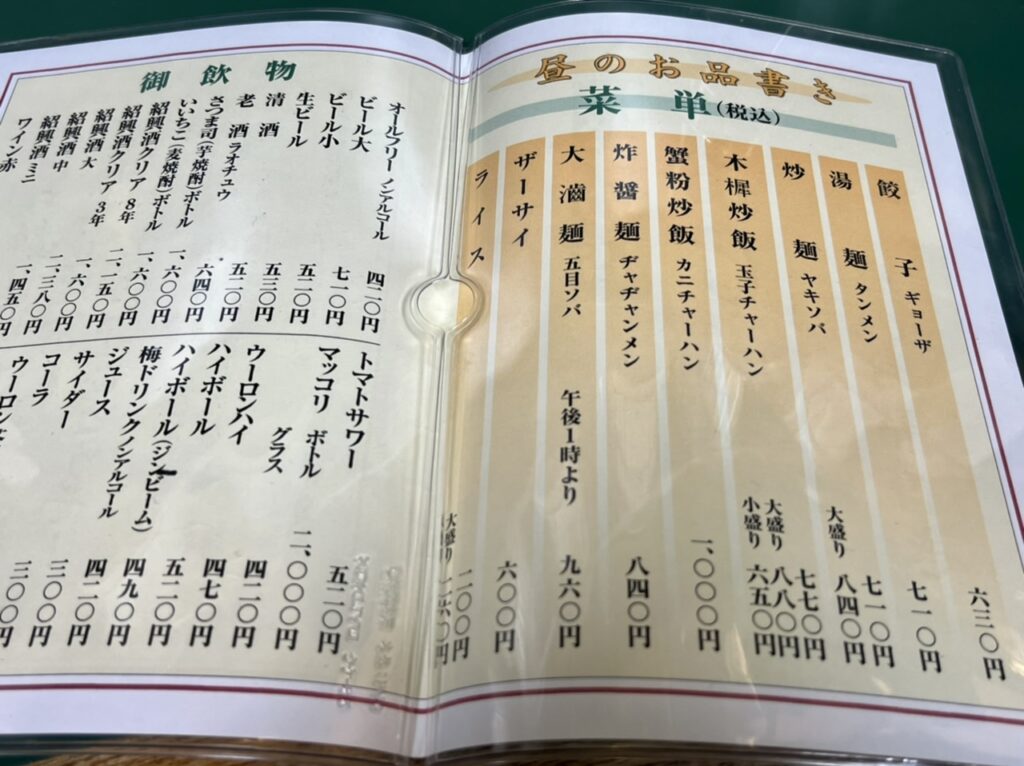 昼のお品書き
菜単(税込)
餃子 ギョーザ 六三〇円
湯麺 タンメン 七一〇円
炒麺 ヤキソバ 七一〇円
大盛り 八四〇円
木樨炒飯 玉子チャーハン 七七〇円
大盛り 八八〇円
小盛り 六五〇円
蟹粉炒飯 カニチャーハン 一、〇〇〇円
炸醤麺 ヂャヂャンメン 八四〇円
大滷麺 五目ソバ 午後1時より 九六〇円
ザーサイ 六〇〇円
ライス 二〇〇円
大盛り
御飲物
オールフリー ノンアルコール 四二〇円
ビール大 七一〇円
ビール小 五二〇円
生ビール 五三〇円
清酒 五二〇円
老酒 ラオチュウ 六四〇円
さつま司(芋焼酎)ボトル 一、六〇〇円
いいちこ(麦焼酎)ボトル 一、六〇〇円
紹興酒クリア 8年 二、一五〇円
紹興酒クリア 3年 一、六〇〇円
紹興酒 大 二、三八〇円
紹興酒 中 一、四五〇円
紹興酒 ミニ
ワイン赤
トマトサワー 五二〇円
マッコリ ボトル 二、〇〇〇円
グラス 四二〇円
ウーロンハイ 四七〇円
ハイボール 五二〇円
ハイボール(ジンビーム) 四九〇円
梅ドリンクノンアルコール 四二〇円
ジュース 三〇〇円
サイダー 三〇〇円
コーラ